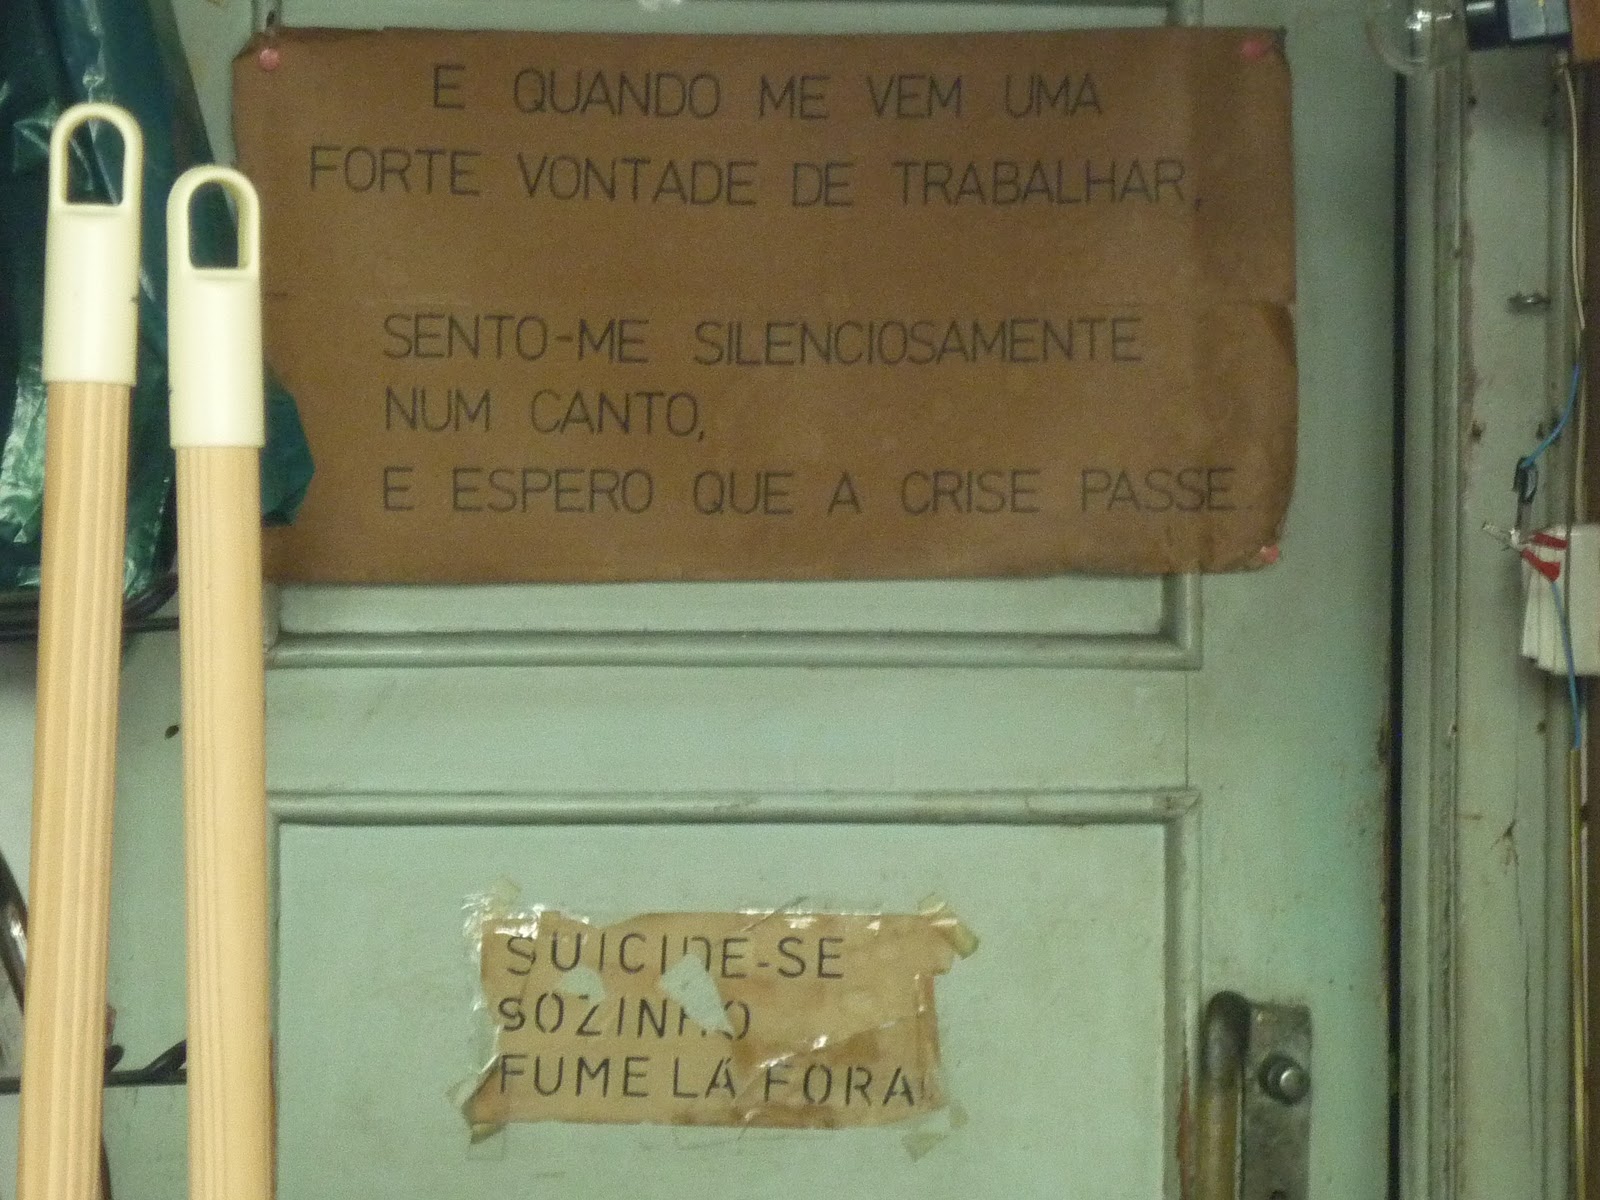 E QUANDO ME VEM UMA
FORTE VONTADE DE TRABALHAR,
SENTO-ME SILENCIOSAMENTE
NUM CANTO,
E ESPERO QUE A CRISE PASSE..
SUICIDE-SE
SOZINHO
FUME LÁ FORA!